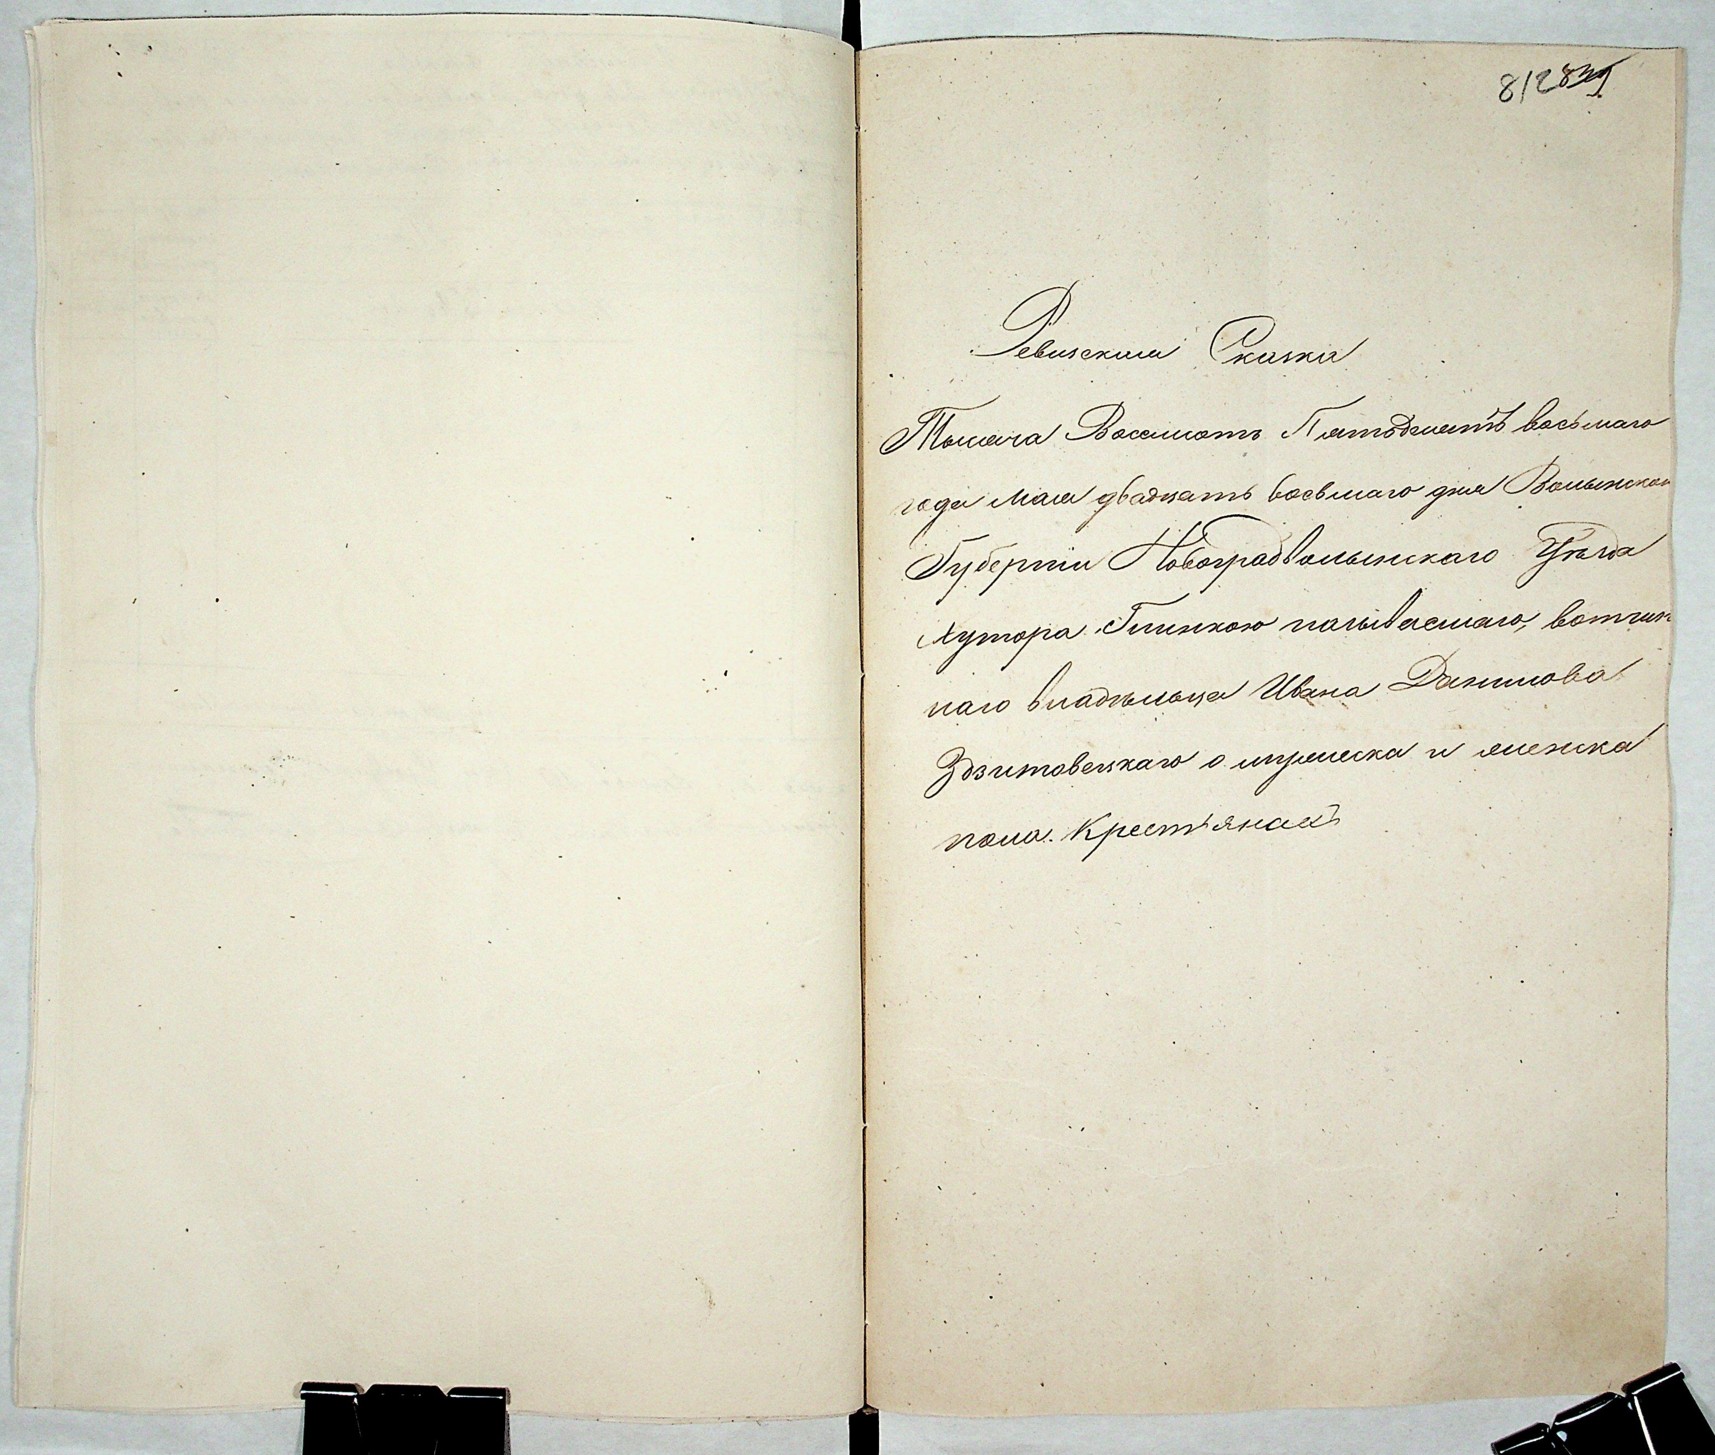 812
Ревизская Сказка
Тысяча Восемсотъ Пятьдесятъ восьмаго
года Мая двадцать восьмаго дня Волынской
Губерніи Новоградволынскаго Уѣзда
Хутора Глинкою называемаго, вотчин
наго владѣльца Ивана Данилова
Здзитовецкаго о мужеска и женска
пола Крестьянахъ